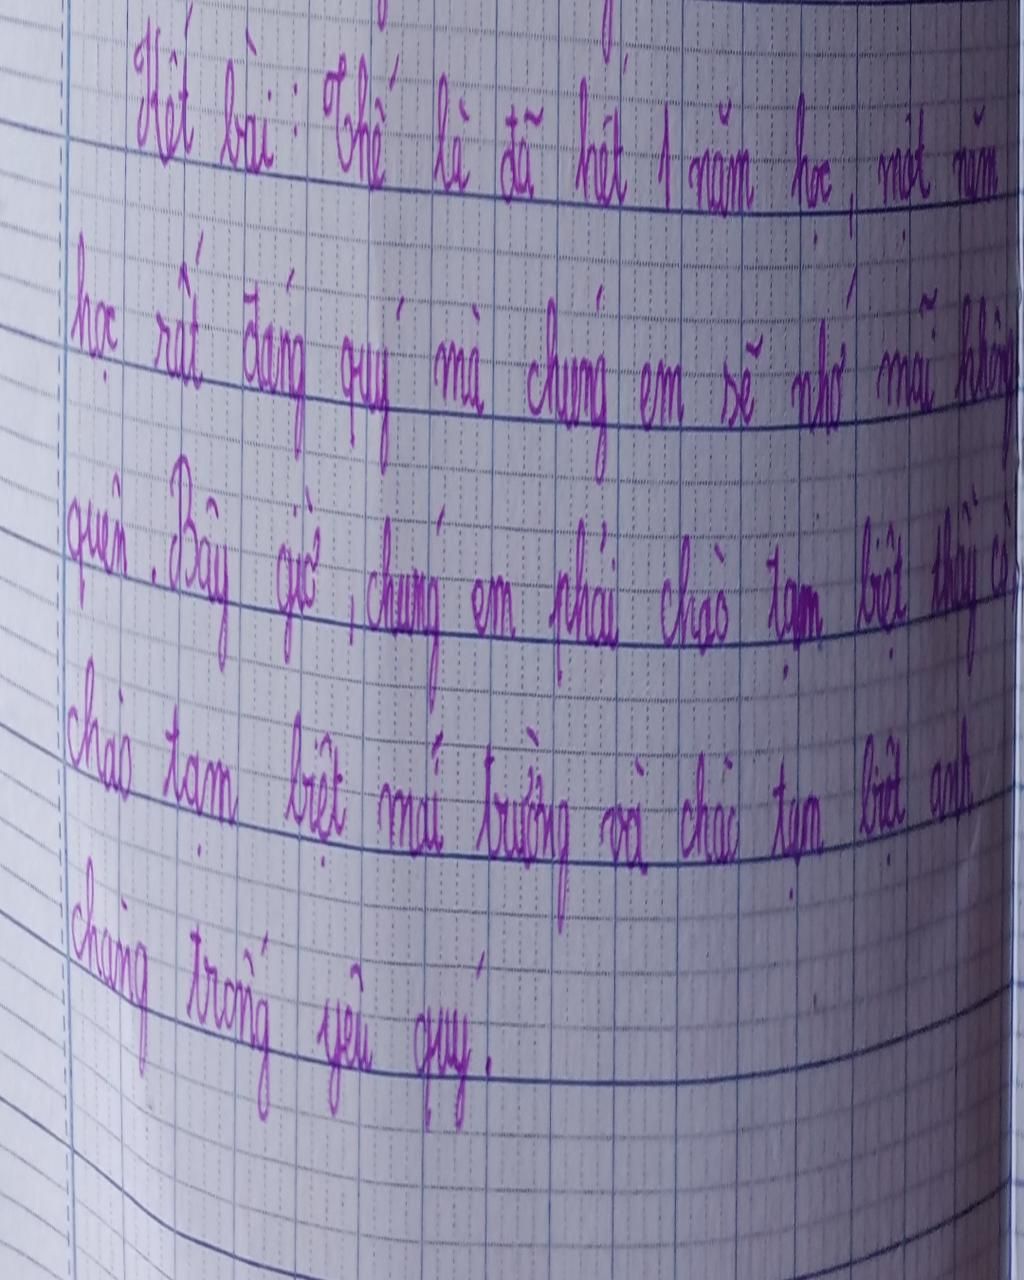 Kết bài : Thế là đã hết 1 năm học, một năm
học rất đáng quý mà chúng em sẽ nhớ mãi không
quên. Bây giờ, chúng em phải chào tạm biệt thầy cô
chào tạm biệt mái trường và chào tạm biệt anh
chàng trống yêu quý.